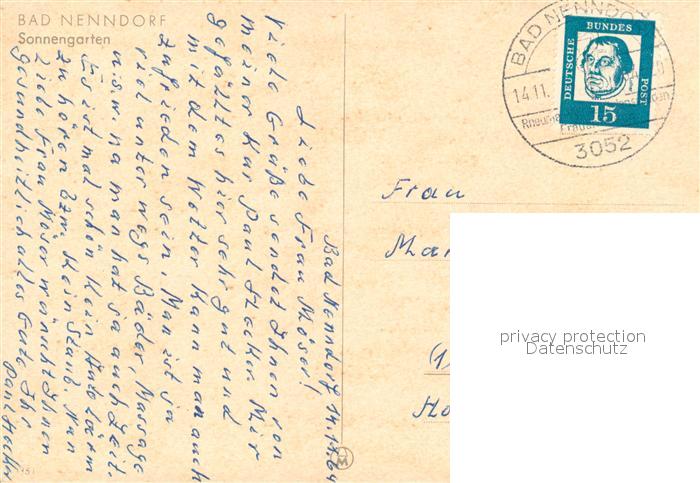 BAD NENNDORF
Sonnengarten
Bad Nenndorf 14.11.64
Liebe Frau Möser!
Viele Grüße sendet Ihnen von
meiner Kur Paul Hacker. Mir
gefällt es hier sehr gut und
mit dem Wetter kann man auch
zufrieden sein. Man ist ja
viel unterwegs Bäder, Massage
u.s.w. na man hat ja auch Zeit.
Es ist mal schön kein Autolärm
zu hören bzw. kein Staub. Nun
Liebe Frau Möser wünscht Ihnen
gesundheitlich alles Gute Ihr
Paul Hacker
BAD NENNDORF
14.11.
3052
DEUTSCHE BUNDES POST
15
Frau
Mar
(1
Ha
privacy protection
Datenschutz